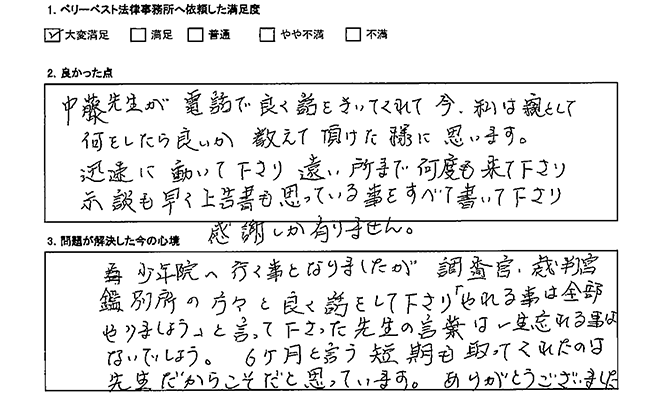 1. ベリーベスト法律事務所へ依頼した満足度
☑大変満足 □満足 □普通 □やや不満 □不満
2. 良かった点
中藤先生が電話で良く話をきいてくれて今、私は親として
何をしたら良いか教えて頂けた様に思います。
迅速に動いて下さり遠い所まで何度も来て下さり
示談も早く上告書も思っている事をすべて書いて下さり
感謝しか有りません。
3. 問題が解決した今の心境
少年院へ行く事となりましたが調査官、裁判官
鑑別所の方々と良く話をして下さり「やれる事は全部
やりましょう」と言って下さった先生の言葉は一生忘れる事は
ないでしょう。6ケ月と言う短期も取ってくれたのは
先生だからこそだと思っています。ありがとうございました